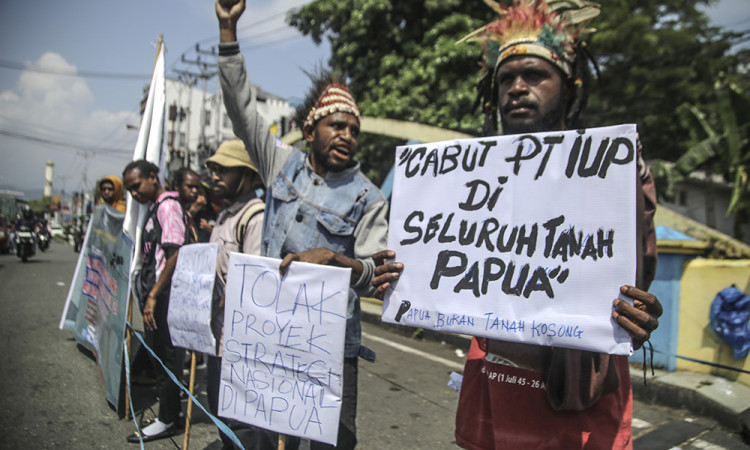 "CABUT PT IUP
DI
SELURUH TANAH
PAPUA"
PAPUA BUKAN TANAH KOSONG
TOLAK
PROYEK
STRATEGI
NASIONAL
DI PAPUA
AP (1 Juli 45 - 26 A